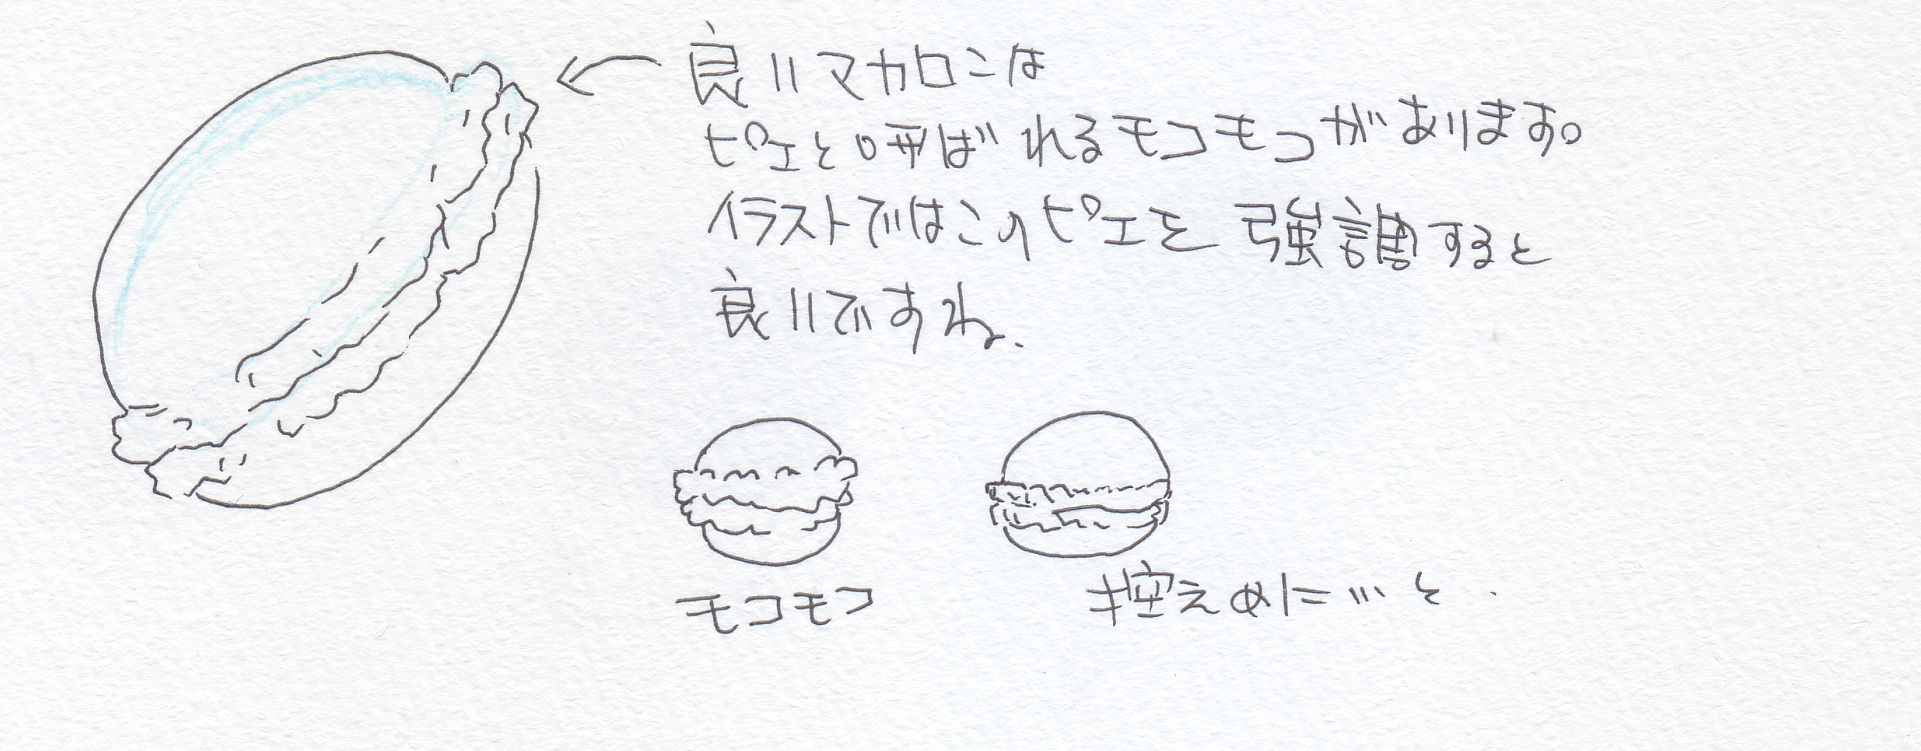 良いマカロンは
ピエと呼ばれるモコモコがあります。
イラストではこのピエを強調すると
良いですね.
モコモコ
控えめに…と.